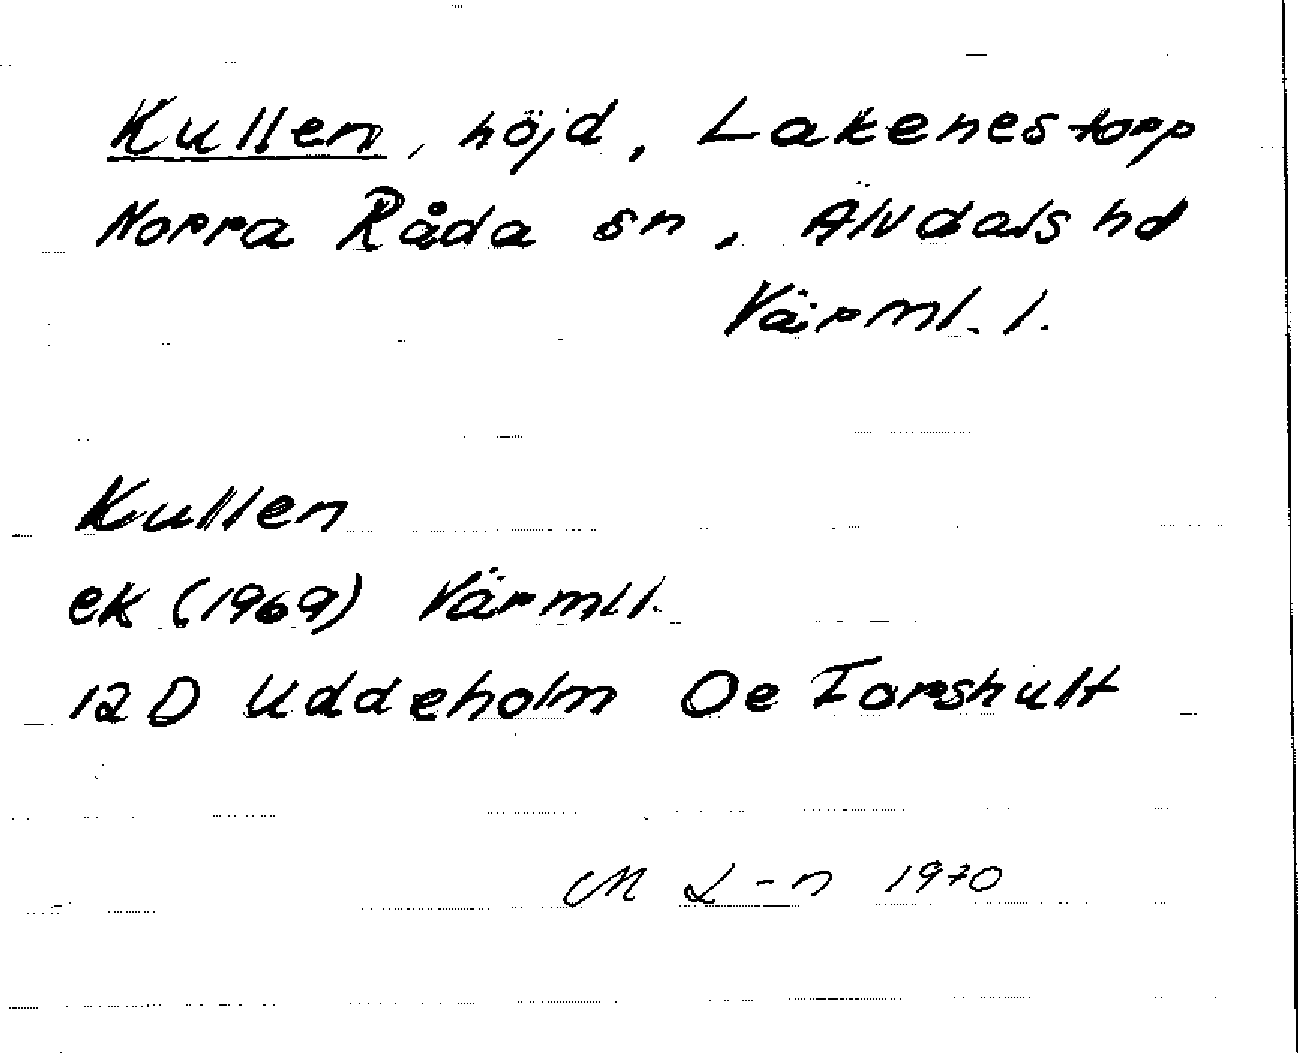 Kullen, höjd, Lakenestorp
Norra Råda sn, Älvdals hd
Värml. l.
Kullen
ek (1969) Värml l.
12 D Uddeholm Oe Forshult
M L-n 1970